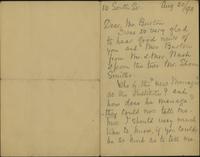 10 South St. Aug 20/98
Dear Mr. Burton
I was so very glad
to hear good news of
you and Mrs Burton
from Mr. & Mrs. Nash
& from the two Mr. Shore
Smiths.
Who is the "new Manager
at the Institute"? and
how does he manage?
they could not tell me.
I should very much
like to know, if you could
be so kind as to tell me.